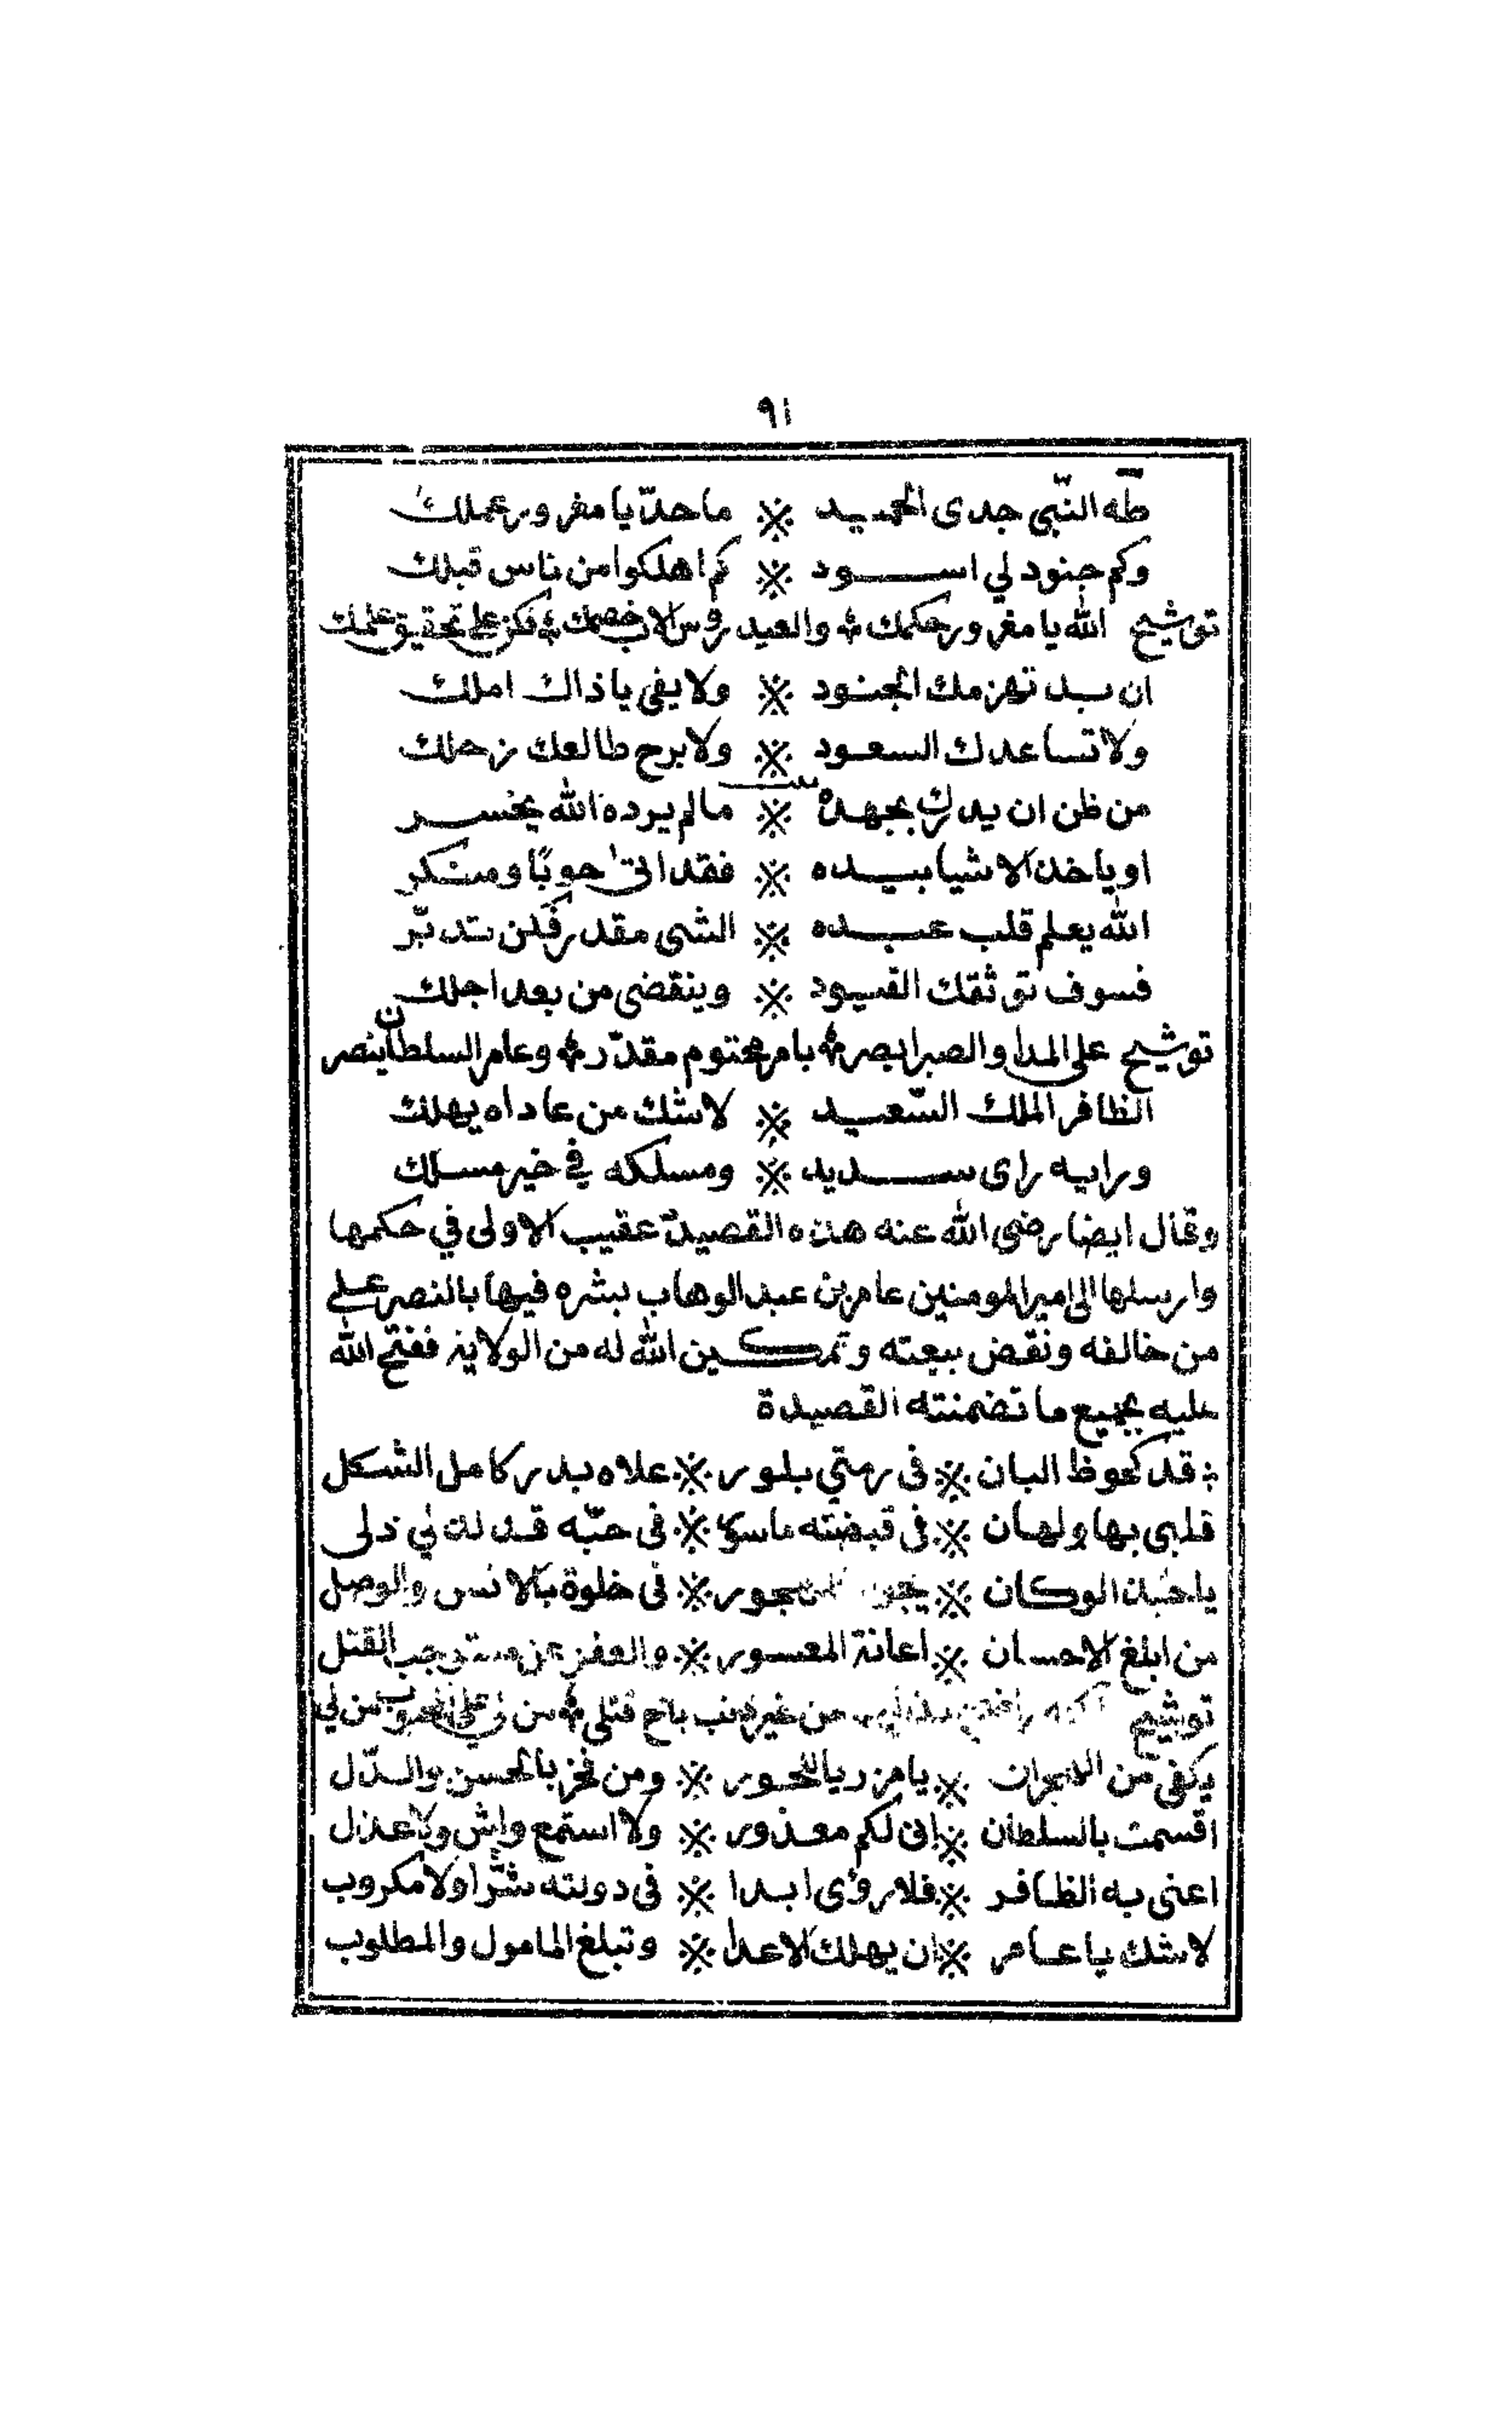 ٩١
طه النّبي جدى الحميد ※ ما حدّ يا مغرور عملك
وكم جنود لي اسود ※ كم اهلكوا من ناس قبلك
توشيح الله يا مغرور حكمك والعيدروس الاب خصمك فكن على تحقيق علمك
ان بد تهزمك الجنود ※ ولا يفى ياذاك املك
ولا تساعدك السعود ※ ولا برح طالعك زحلك
من ظن ان يدرك بجهده ※ مالم يرده الله يخسر
او ياخذ الاشيا بيده ※ فقد اتى حوبًا ومنكر
الله يعلم قلب عبده ※ الشى مقدر فلن تدبّر
فسوف توثقك القيود ※ وينقضى من بعد اجلك
توشيح على المدا والصبر ابصر بامر محتوم مقدّر وعامر السلطان ينصر
الظافر الملك السّعيد ※ لاشك من عاداه يهلك
ورايه راى سديد ※ ومسلكه في خير مسلك
وقال ايضا رضى الله عنه هذه القصيدة عقيب الاولى في حكمها
وارسلها الى امير المومنين عامر بن عبد الوهاب بشره فيها بالنصر على
من خالفه ونقض بيعته وتمكين الله له من الولاية ففتح الله
عليه بجميع ما تضمنته القصيدة
قد كحوظ البان ※ فى رمتي بلور ※ علاه بدر كامل الشكل
قلبى بها ولهان ※ فى قبضته ماسور ※ فى حبّه قد لذ لي ذلى
يا حبذا لوكان ※ ※ فى خلوة بالانس والوصل
من ابلغ الاحسان ※ اعانة المعسور ※ والعفو عن مستوجب القتل
توشيح من غير ذنب باح قتلى من لي على المحبوب من لي
يكفى من الهجران ※ يا مزريا للحور ※ ومن فخر بالحسن والدّل
اقسمت بالسلطان ※ انى لكم معذور ※ ولا استمع واش ولا عذل
اعنى به الظافر ※ فلا رؤى ابدا ※ فى دولته شرّا ولا مكروب
لاشك يا عامر ※ ان يهلك الاعدا ※ وتبلغ المامول والمطلوب